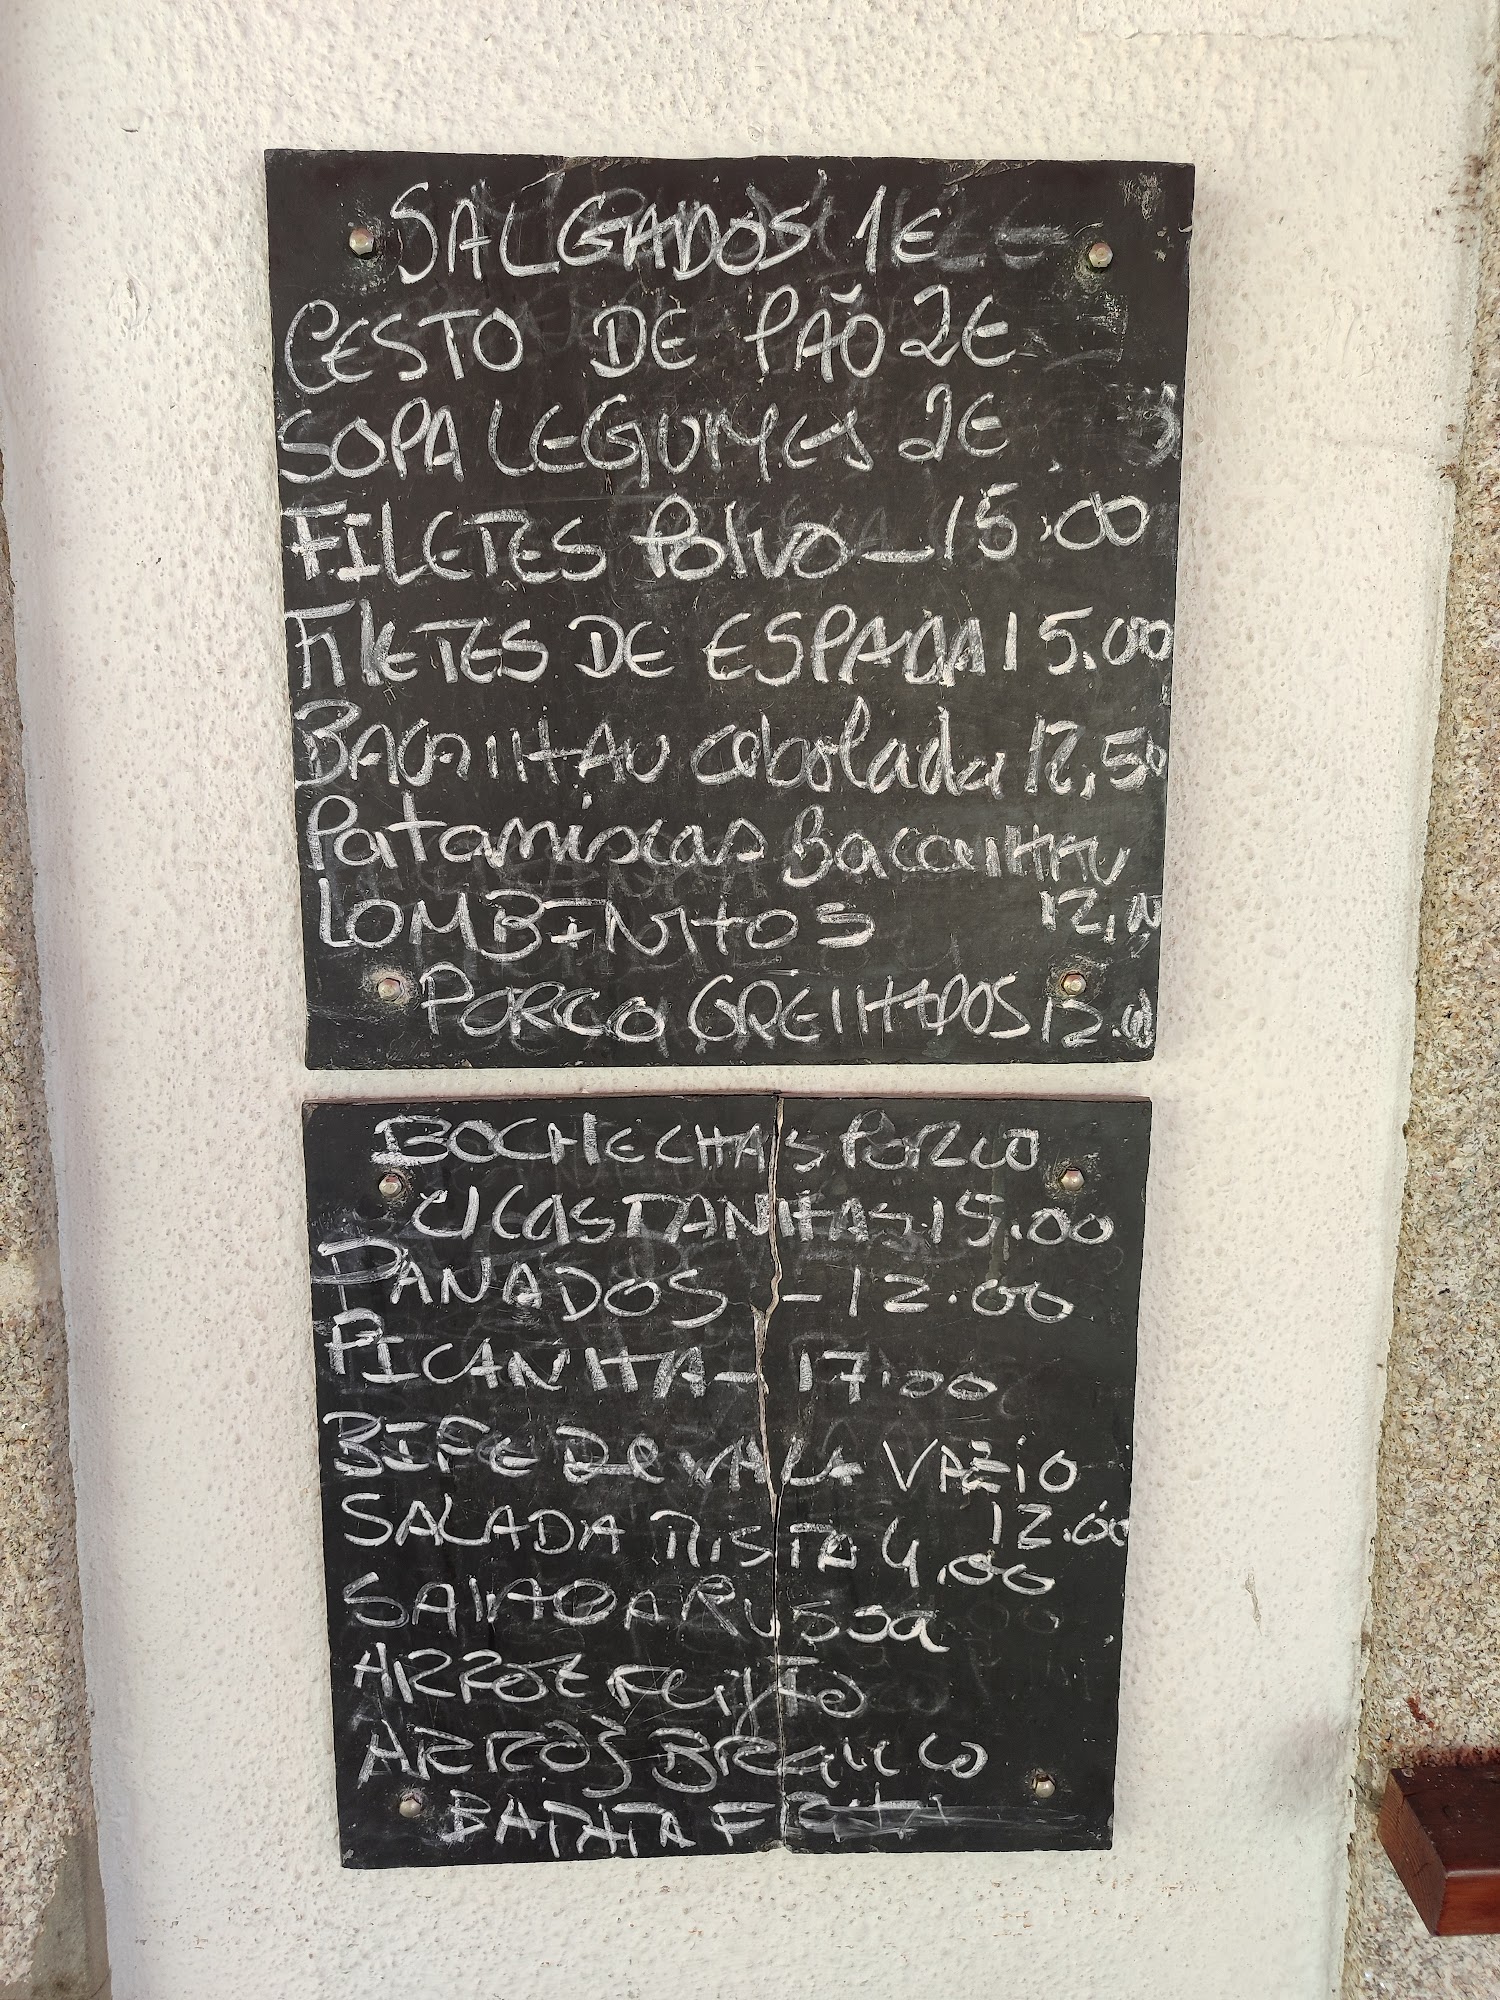 SALGADOS 1E
CESTO DE PÃO 2E
SOPA LEGUMES 2E
FILETES Polvo - 15.00
FILETES DE ESPADA 15.00
BACALHAU cebolada 12,50
Pataniscas Bacalhau
12,
LOMBINHOS
PORCO GRELHADOS 12.00
BOCHECHAS PORCO
C/ CASTANHAS 15.00
PANADOS - 12.00
PICANHA - 17.00
BIFE VAZIO
12.00
SALADA MISTA 4.00
SALADA RUSSA
ARROZ FEIJÃO
ARROZ BRANCO
BATATA FRITA